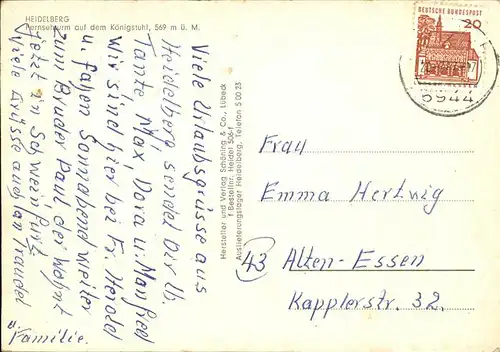 HEIDELBERG
Fernsehturm auf dem Königstuhl, 569 m ü. M.
Viele Urlaubsgrüsse aus
Heidelberg sendet Dir lb.
Tante, Max, Dora u. Manfred
Wir sind hier bei Fr. Herold
u. fahren Sonnabend weiter
zum Bruder Paul der wohnt
jetzt in Schweinfurt
Viele Grüsse auch an Traudel
u.
Familie.
Hersteller und Verlag Schöning & Co., Lübeck
† Bestellnr. Heidel 506-f
Auslieferungslager Heidelberg, Telefon 5 00 23
DEUTSCHE BUNDESPOST
20
6944
Frau
Emma Hertwig
43 Alten-Essen
Kapplerstr. 32.